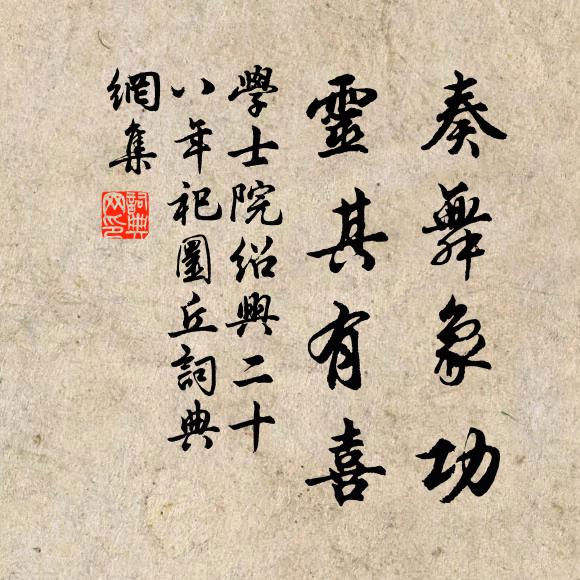 奏舞象功
靈其有喜
學士院紹興二十
八年祀圜丘詞典
網集
詞典
网印